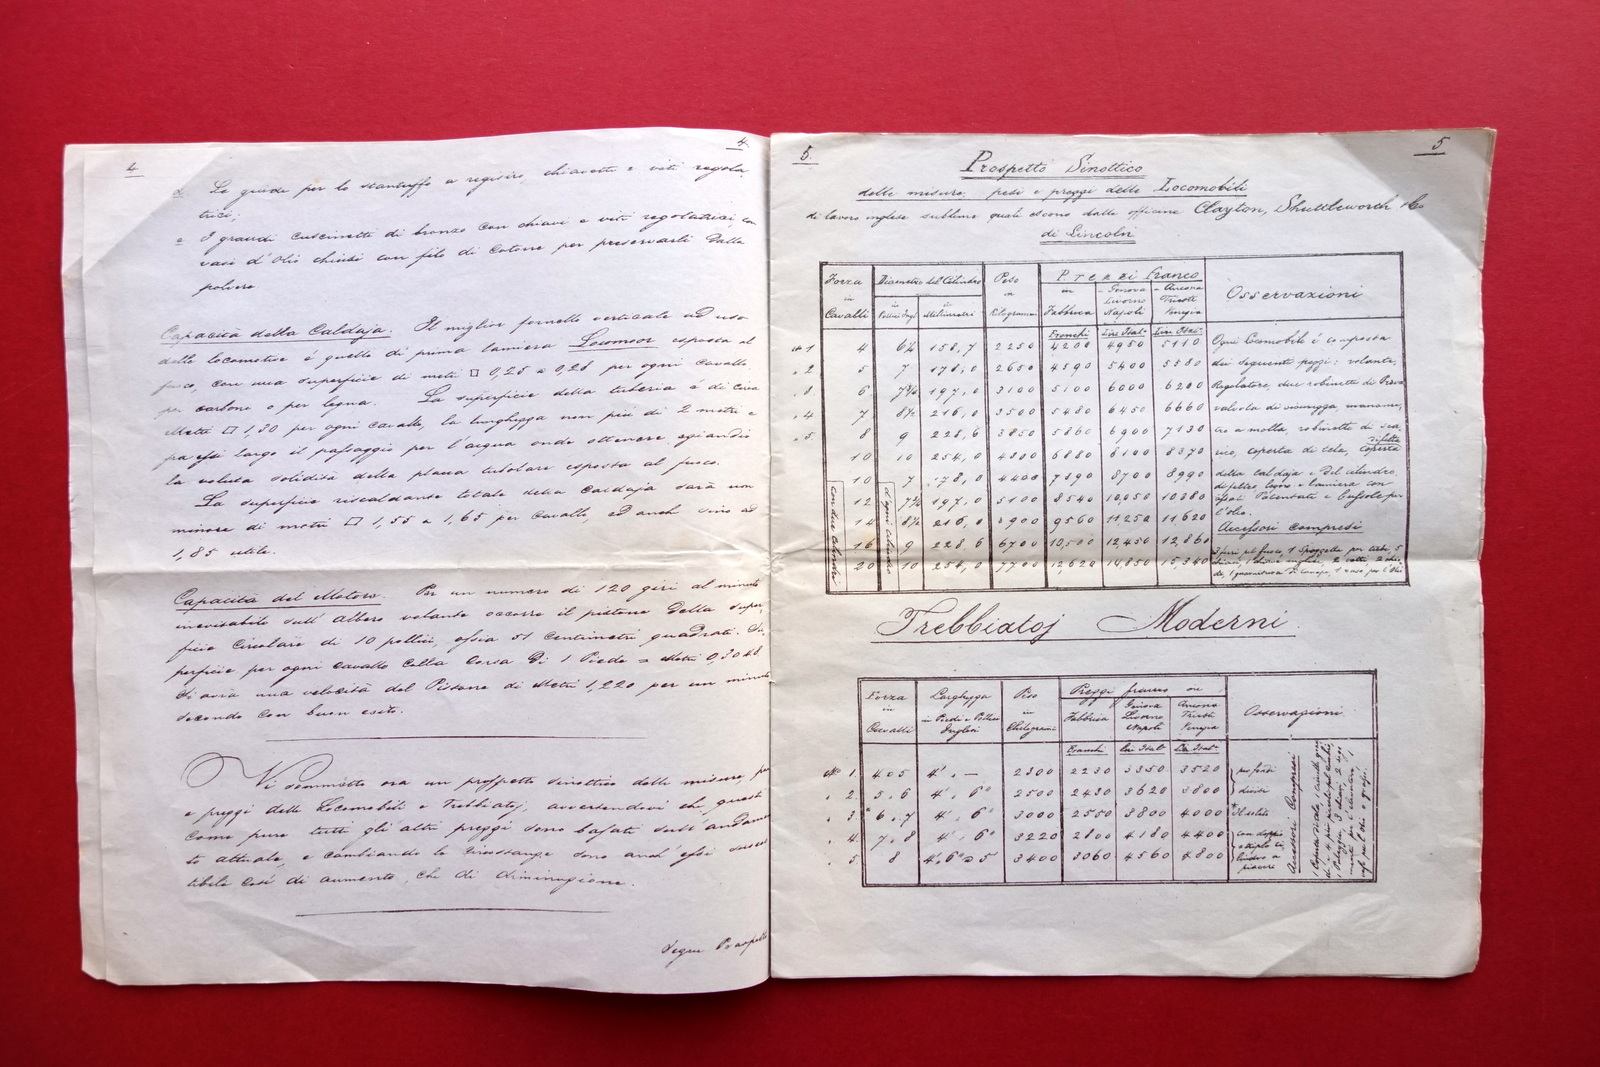 4
4
d. Le guide per lo stantuffo a registro, chiavette e viti regola
trici;
e I grandi cuscinetti di bronzo con chiavi e viti regolatrici, con
vasi d'Olio chiusi con filo di Cotone per preservarli dalla
polvere
Capacità della Caldaja. Il miglior fornello verticale ad uso
delle locomotive é quello di prima lamiera Lowmoor esposta al
fuoco, con una superficie di metri □ 0,25 a 0,28 per ogni cavallo
per carbone o per legna. La superficie della tuberia é di circa
Metri □ 1,30 per ogni cavallo, la lunghezza non più di 2 metri e
largo il passaggio per l'acqua onde ottenere, eziandio
la voluta solidità della placca tubolare esposta al fuoco.
La superficie riscaldante totale della Caldaja sarà un
minore di metri □ 1,55 a 1,65 per Cavallo, ed anch sino ad
1,85 utile.
Capacità del Motore. Per un numero di 120 giri al minuto
sull'albero volante occorre il pistone della super
ficie Circolare di 10 pollici, ossia 51 Centimetri quadrati. Su
perficie per ogni cavallo colla Corsa di 1 Piede = Metri 0,3048
si avrà una velocità del Pistone di Metri 1,220 per un minuto
secondo con buon esito.
Vi sommetto ora un prospetto sinottico delle misure, pesi
e prezzi delle Locomobili e Trebbiatoj, avvertendovi che questi
Come pure tutti gli altri prezzi sono basati sull'andamen
to attuale, e cambiando le Circostanze sono anch'essi suscet
tibili Così di aumento, che di diminuzione.
Segue Prospetto
5.
5
Prospetto Sinottico
delle misure, pesi e prezzi delle Locomobili
di lavoro inglese sublime quali escono dalle officine Clayton, Shuttleworth & Co
di Lincoln
Forza in Cavalli | Diametro del Cilindro | Peso in Kilogrammi | Prezzi Franco | Osservazioni
in Pollici Ingl. | in Millimetri | in Fabbrica | Genova Livorno Napoli | Ancona Trieste Venezia
Franchi | Lire Ital. | Lire Ital.
No 1 4 6¼ 158,7 2250 4200 4950 5110 Ogni Locomobile é composta
" 2 5 7 178,0 2650 4590 5400 5580 dei seguenti pezzi: volante,
" 3 6 7¾ 197,0 3100 5100 6000 6200 Regolatore, due robinetti di Prova
" 4 7 8½ 216,0 3500 5480 6450 6660 valvola di sicurezza, manome,
" 5 8 9 228,6 3850 5860 6900 7130 tro a molla, robinetto di sca,
10 10 254,0 4800 6880 8100 8370 rico, coperta di tela, coperta
10 7 178,0 4400 7390 8700 8990 della Caldaja e del cilindro
12 7¾ 197,0 5100 8540 10,050 10380 di feltro, legno e lamiera con
14 8½ 216,0 5900 9560 11250 11620 l'olio.
Accessori compresi
16 9 228,6 6700 10,500 12,450 12,860
20 10 254,0 7700 12,620 14,850 15,340
con due Cilindri
d'ogni Cilindro
Trebbiatoj Moderni
Forza in Cavalli | Larghezza in Piedi e Pollici Inglesi | Peso in Chilogrami | Prezzi franco in | Osservazioni
Fabbrica | Genova Livorno Napoli | Ancona Trieste Venezia
Franchi | Lire Ital. | Lire Ital.
No 1. 4 o 5 4'. — 2300 2230 3350 3520
" 2. 5, 6 4'. 6" 2500 2430 3620 3800
" 3 6, 7 4'. 6" 3000 2550 3800 4000
" 4. 7, 8 4'. 6" 3220 2800 4180 4400 con doppio
" 5 8 4', 6" o 5 3400 3060 4560 4800 piacere
Accessori Compresi